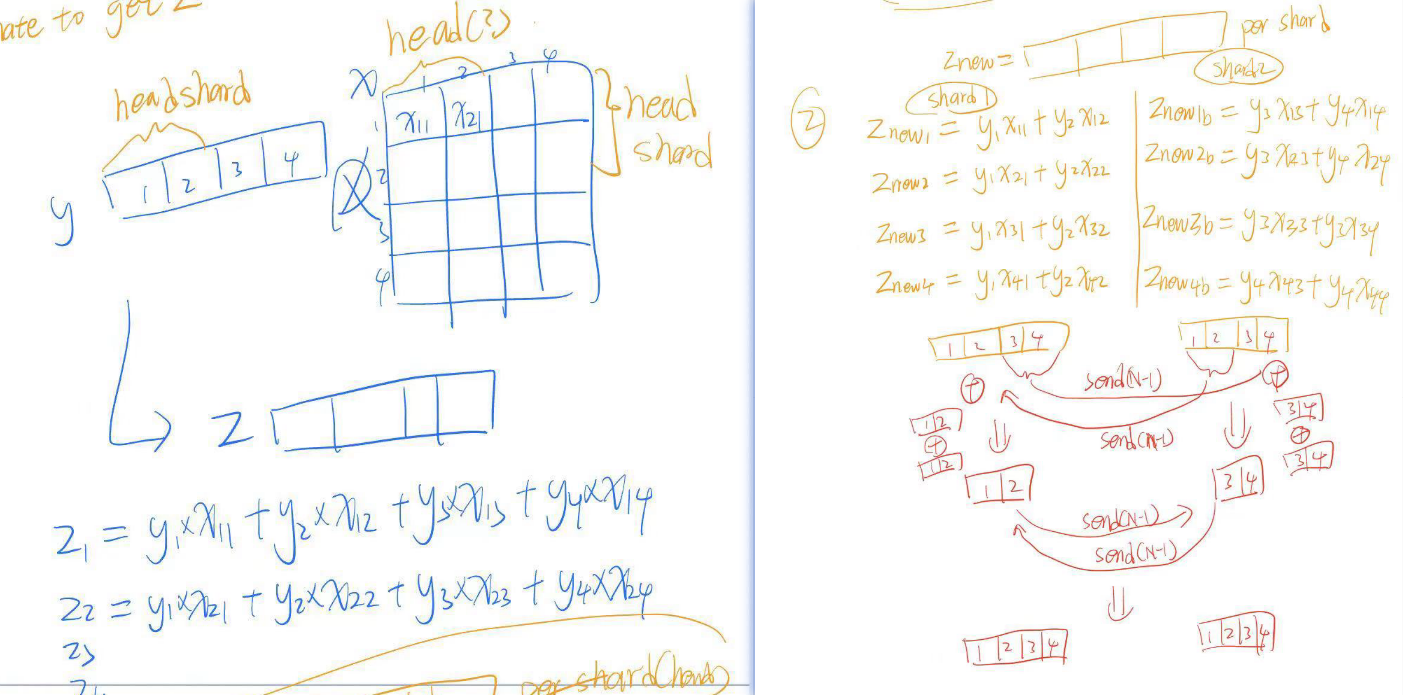 ate to get Z
headshard
head(?)
X
1 2 3 4
1 x11 x21
2
3
4
head
shard
y
1 2 3 4
X
Z
z1 = y1×x11 + y2×x12 + y3×x13 + y4×x14
z2 = y1×x21 + y2×x22 + y3×x23 + y4×x24
z3
per shard
Znew =
per shard
2
shard1
shard2
Znew1 = y1x11 + y2x12
Znew1b = y3x13 + y4x14
Znew2 = y1x21 + y2x22
Znew2b = y3x23 + y4x24
Znew3 = y1x31 + y2x32
Znew3b = y3x33 + y3x34
Znew4 = y1x41 + y2x42
Znew4b = y4x43 + y4x44
1 2 3 4
1 2 3 4
send(N-1)
send(N-1)
1 2
+
1 2
3 4
+
3 4
1 2
3 4
send(N-1)
send(N-1)
1 2 3 4
1 2 3 4